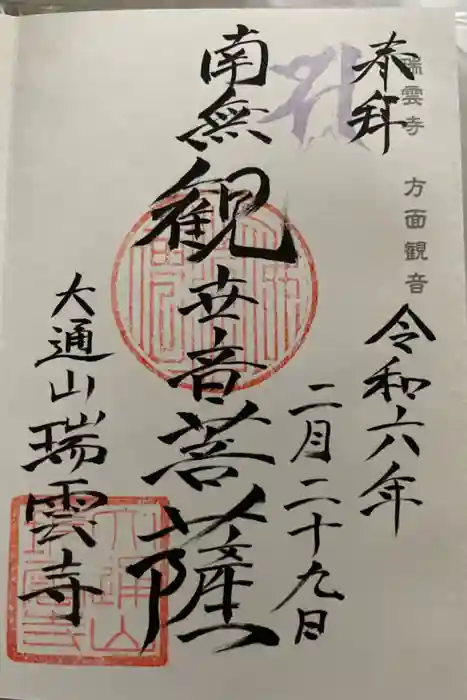 瑞雲寺 方面観音
奉拝
令和六年
二月二十九日
南無観世音菩薩
大通山瑞雲寺